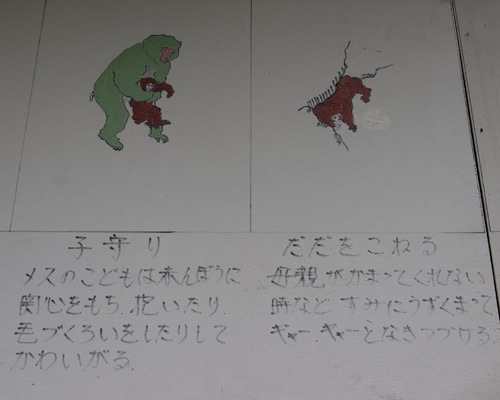 子守り
メスのこどもは赤んぼうに
関心をもち、抱いたり、
毛づくろいをしたりして
かわいがる。
だだをこねる
母親がかまってくれない
時など すみにうずくまって
ギャー、ギャーとなきつづける。